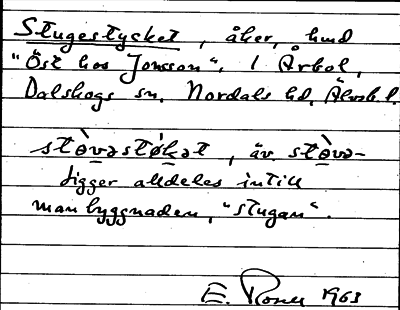 Stugestycket, åker, hmd
"Öst hos Jonsson", 1 Årbol,
Dalskogs sn. Nordals hd, Älvsb. l.
stòvəstøkət, äv. stòvə-
ligger alldeles intill
manbyggnaden, "stugan".
E. 1963